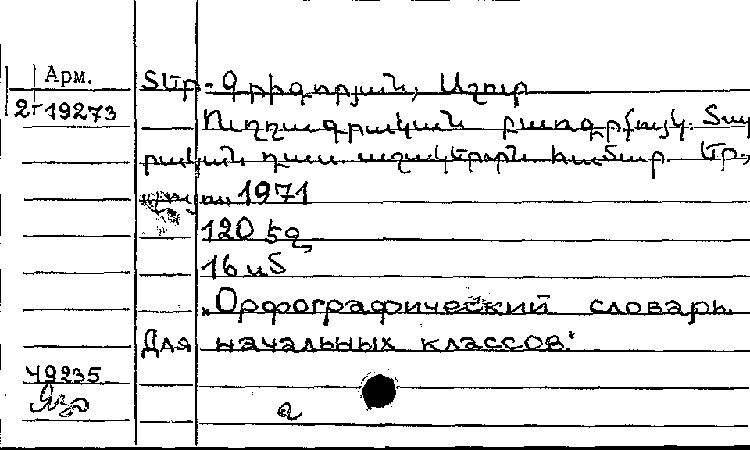 Арм.
Տեր-Գրիգորյան, Աշոտ
2-19273
Ուղղագրական բառգրքույկ. Տար
րական դաս. աշակերտն. համար. Եր.,
1971
120 էջ
16 սմ
„Орфографический словарь
Для начальных классов."
49235